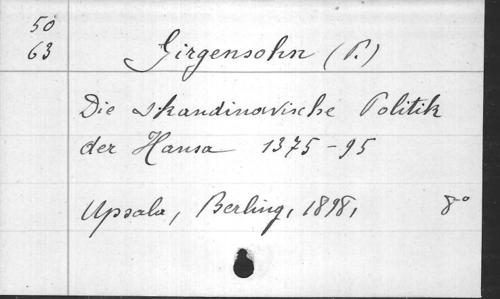 50
63
Girgensohn (P.)
Die skandinavische Politik
der Hansa 1375-95
Upsala, Berling, 1898, 8°